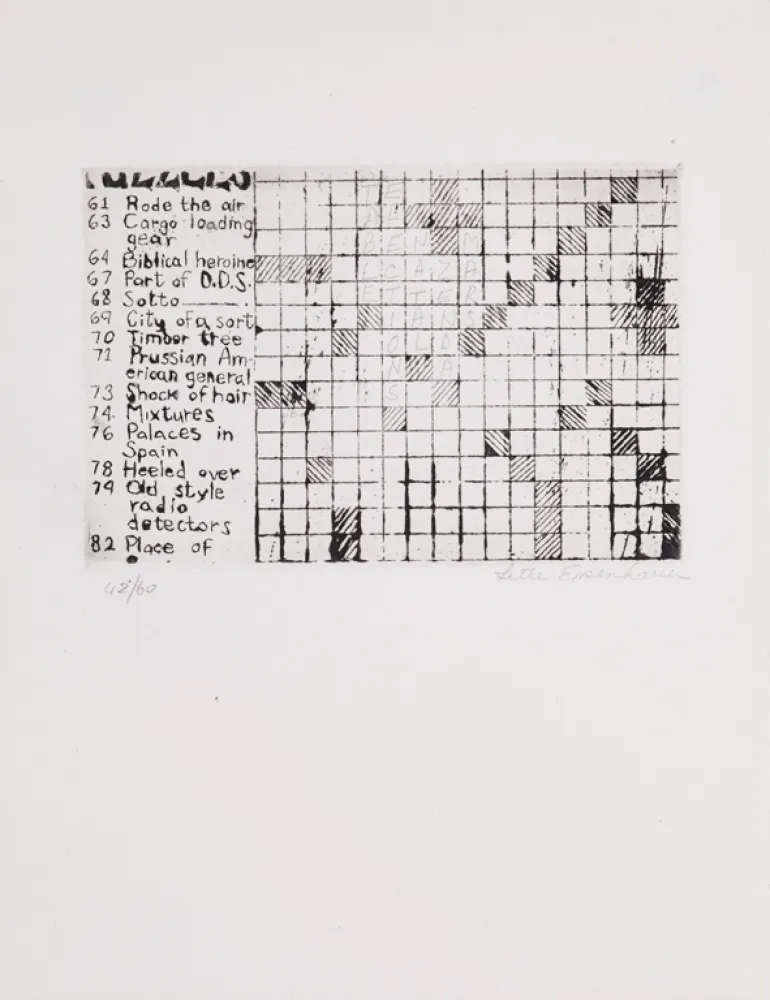 61 Rode the air
63 Cargo loading
gear
64 Biblical heroine
67 Part of D.D.S.
68 Sotto ____.
69 City of a sort
70 Timber tree
71 Prussian Am-
erican general
73 Shock of hair
74. Mixtures
76 Palaces in
Spain
78 Heeled over
79 Old style
radio
detectors
82 Place of
TE
AL
BEN M
LCAZA
ETTER
IANS
OLD
N A
S
42/60
Lette Eisenhauer